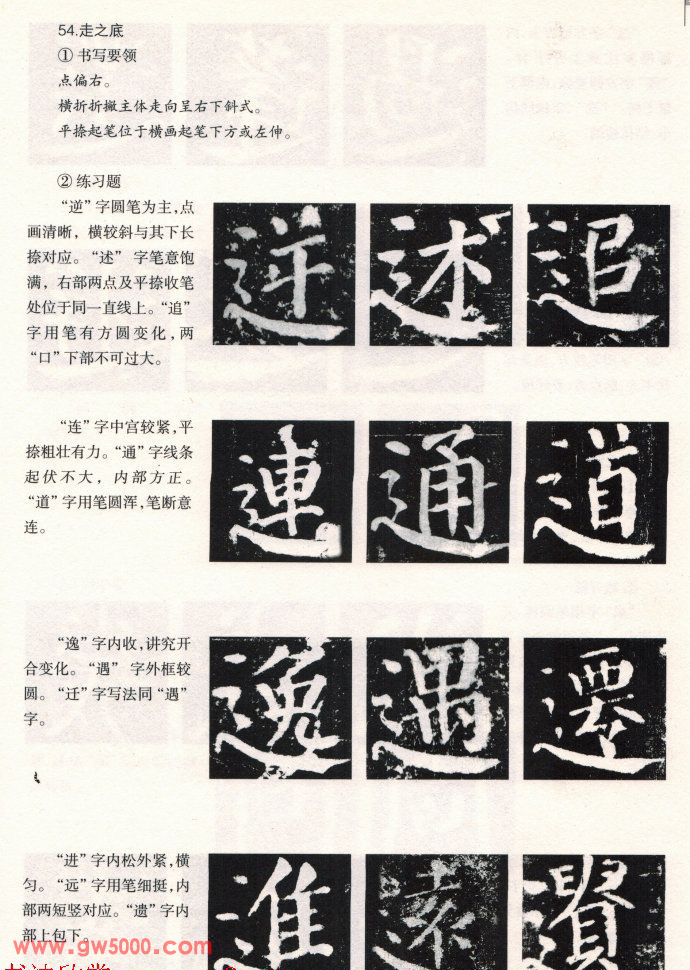 54.走之底
① 书写要领
点偏右。
横折折撇主体走向呈右下斜式。
平捺起笔位于横画起笔下方或左伸。
② 练习题
“逆”字圆笔为主,点
画清晰，横较斜与其下长
捺对应。“述” 字笔意饱
满，右部两点及平捺收笔
处位于同一直线上。“追”
字用笔有方圆变化,两
“口”下部不可过大。
逆 述 追
“连”字中宫较紧,平
捺粗壮有力。“通”字线条
起伏不大，内部方正。
“道”字用笔圆浑,笔断意
连。
連 通 道
“逸”字内收,讲究开
合变化。“遇” 字外框较
圆。“迁”字写法同“遇”
字。
逸 遇 遷
“进”字内松外紧,横
匀。“远”字用笔细挺,内
部两短竖对应。“遗”字内
部上包下。
進 遠 遺
www.gw5000.com